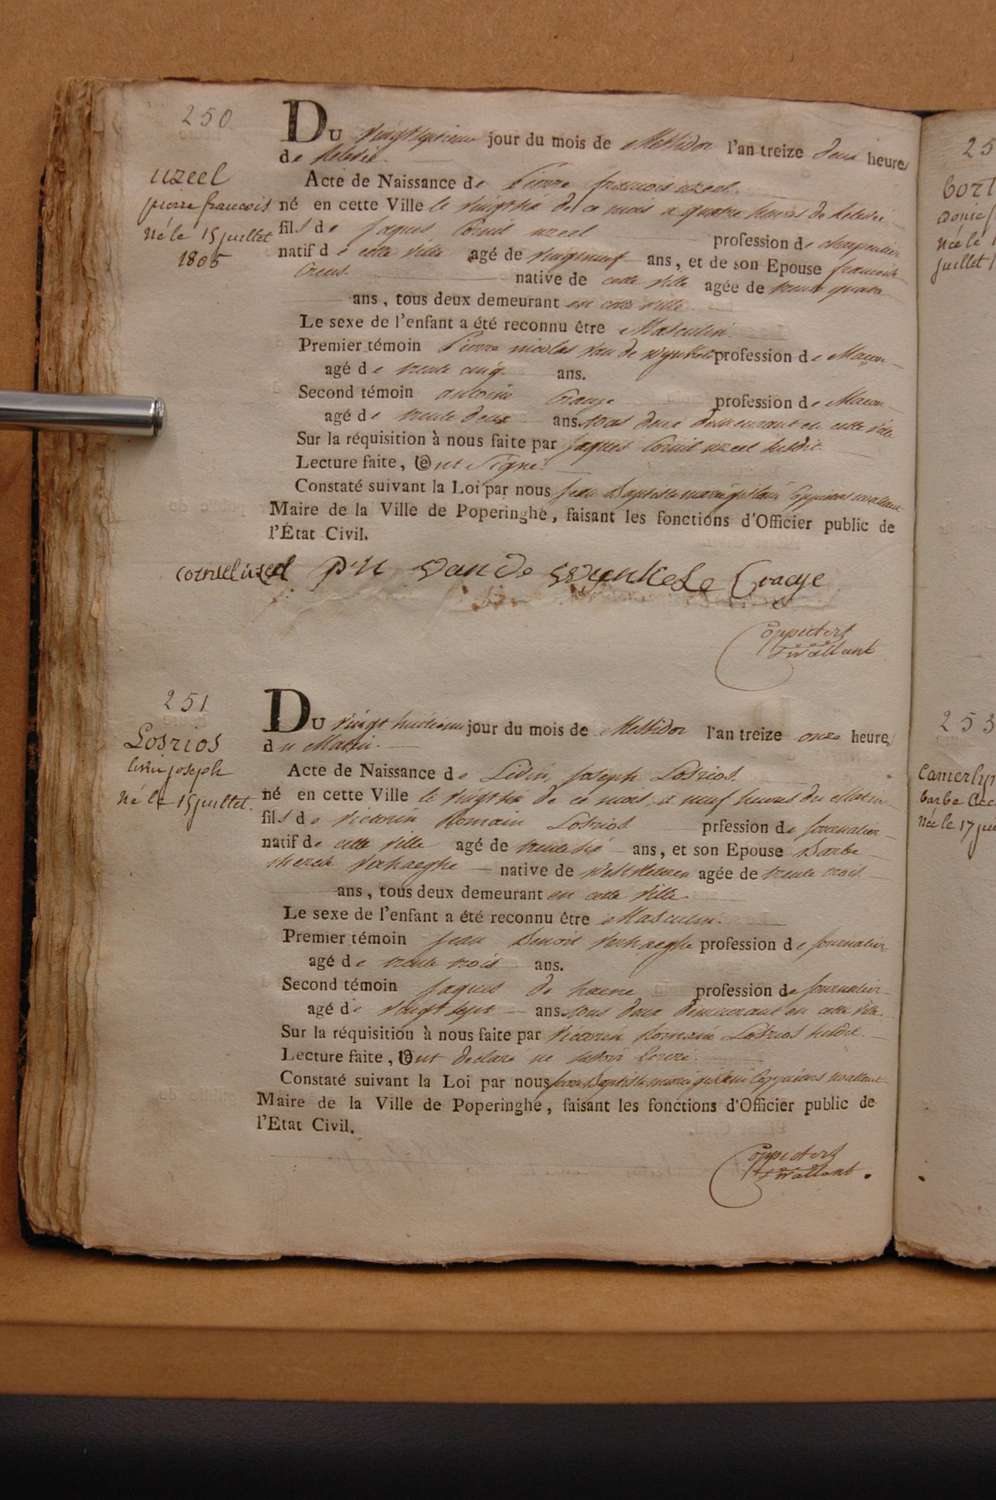 250
Uzeel
pierre francois
Né le 15 juillet
1805
Du jour du mois de Messidor l'an treize deux heures
de relevée.
Acte de Naissance de Pierre francois uzeel
né en cette Ville le vingtsix de ce mois a quatre heures de relevée
fils de Jaques Cornil uzeel profession de charpentier
natif de cette ville agé de vingtneuf ans, et de son Epouse francoise
native de cette ville agée de trente quatre
ans, tous deux demeurant en cette ville.
Le sexe de l'enfant a été reconnu être Masculin.
Premier témoin Pierre nicolas van de wynkele profession de Macon
agé de trente cinq ans.
Second témoin antoine Craeye profession de Macon
agé de trente deux ans. tous deux demeurant en cette ville
Sur la réquisition à nous faite par Jaques Cornil uzeel susdit.
Lecture faite, ont signé.
Constaté suivant la Loi par nous Jean Baptiste
Maire de la Ville de Poperinghe, faisant les fonctions d'Officier public de
l'État Civil.
cornil uzeel p: n van de wynkele Craeye
251
Losrios
livin joseph
Né le 15 juillet.
Du vingt huitieme jour du mois de Messidor l'an treize onze heures
du Matin.
Acte de Naissance de Livin Joseph Losrios
né en cette Ville le vingtsix de ce mois a neuf heures du Matin
fils de Victorin Romain Losrios prfession de journalier
natif de cette ville agé de trente six ans, et son Epouse Barbe
Therese Verhaeghe native de agée de trente trois
ans, tous deux demeurant en cette Ville.
Le sexe de l'enfant a été reconnu être Masculin.
Premier témoin Jean Benoit Verhaeghe profession de journalier
agé de trente trois ans.
Second témoin Jaques de haene profession de journalier
agé de vingt sept ans. tous deux demeurant en cette ville.
Sur la réquisition à nous faite par Victorin Romain Losrios susdit.
Lecture faite, ont declaré ne savoir ecrire.
Constaté suivant la Loi par nous Jean Baptiste
Maire de la Ville de Poperinghe, faisant les fonctions d'Officier public de
l'Etat Civil.
25
juillet 1
253
Née le 17